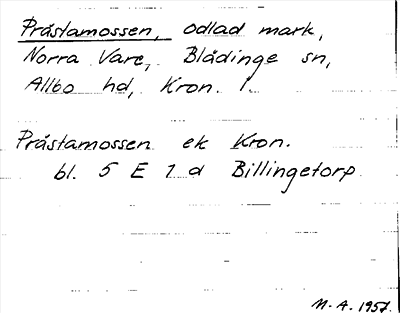 Prästamossen, odlad mark,
Norra Vare, Blädinge sn,
Allbo hd, Kron. l.
Prästamossen ek Kron.
bl. 5 E 1 d Billingetorp
M.A. 1957.